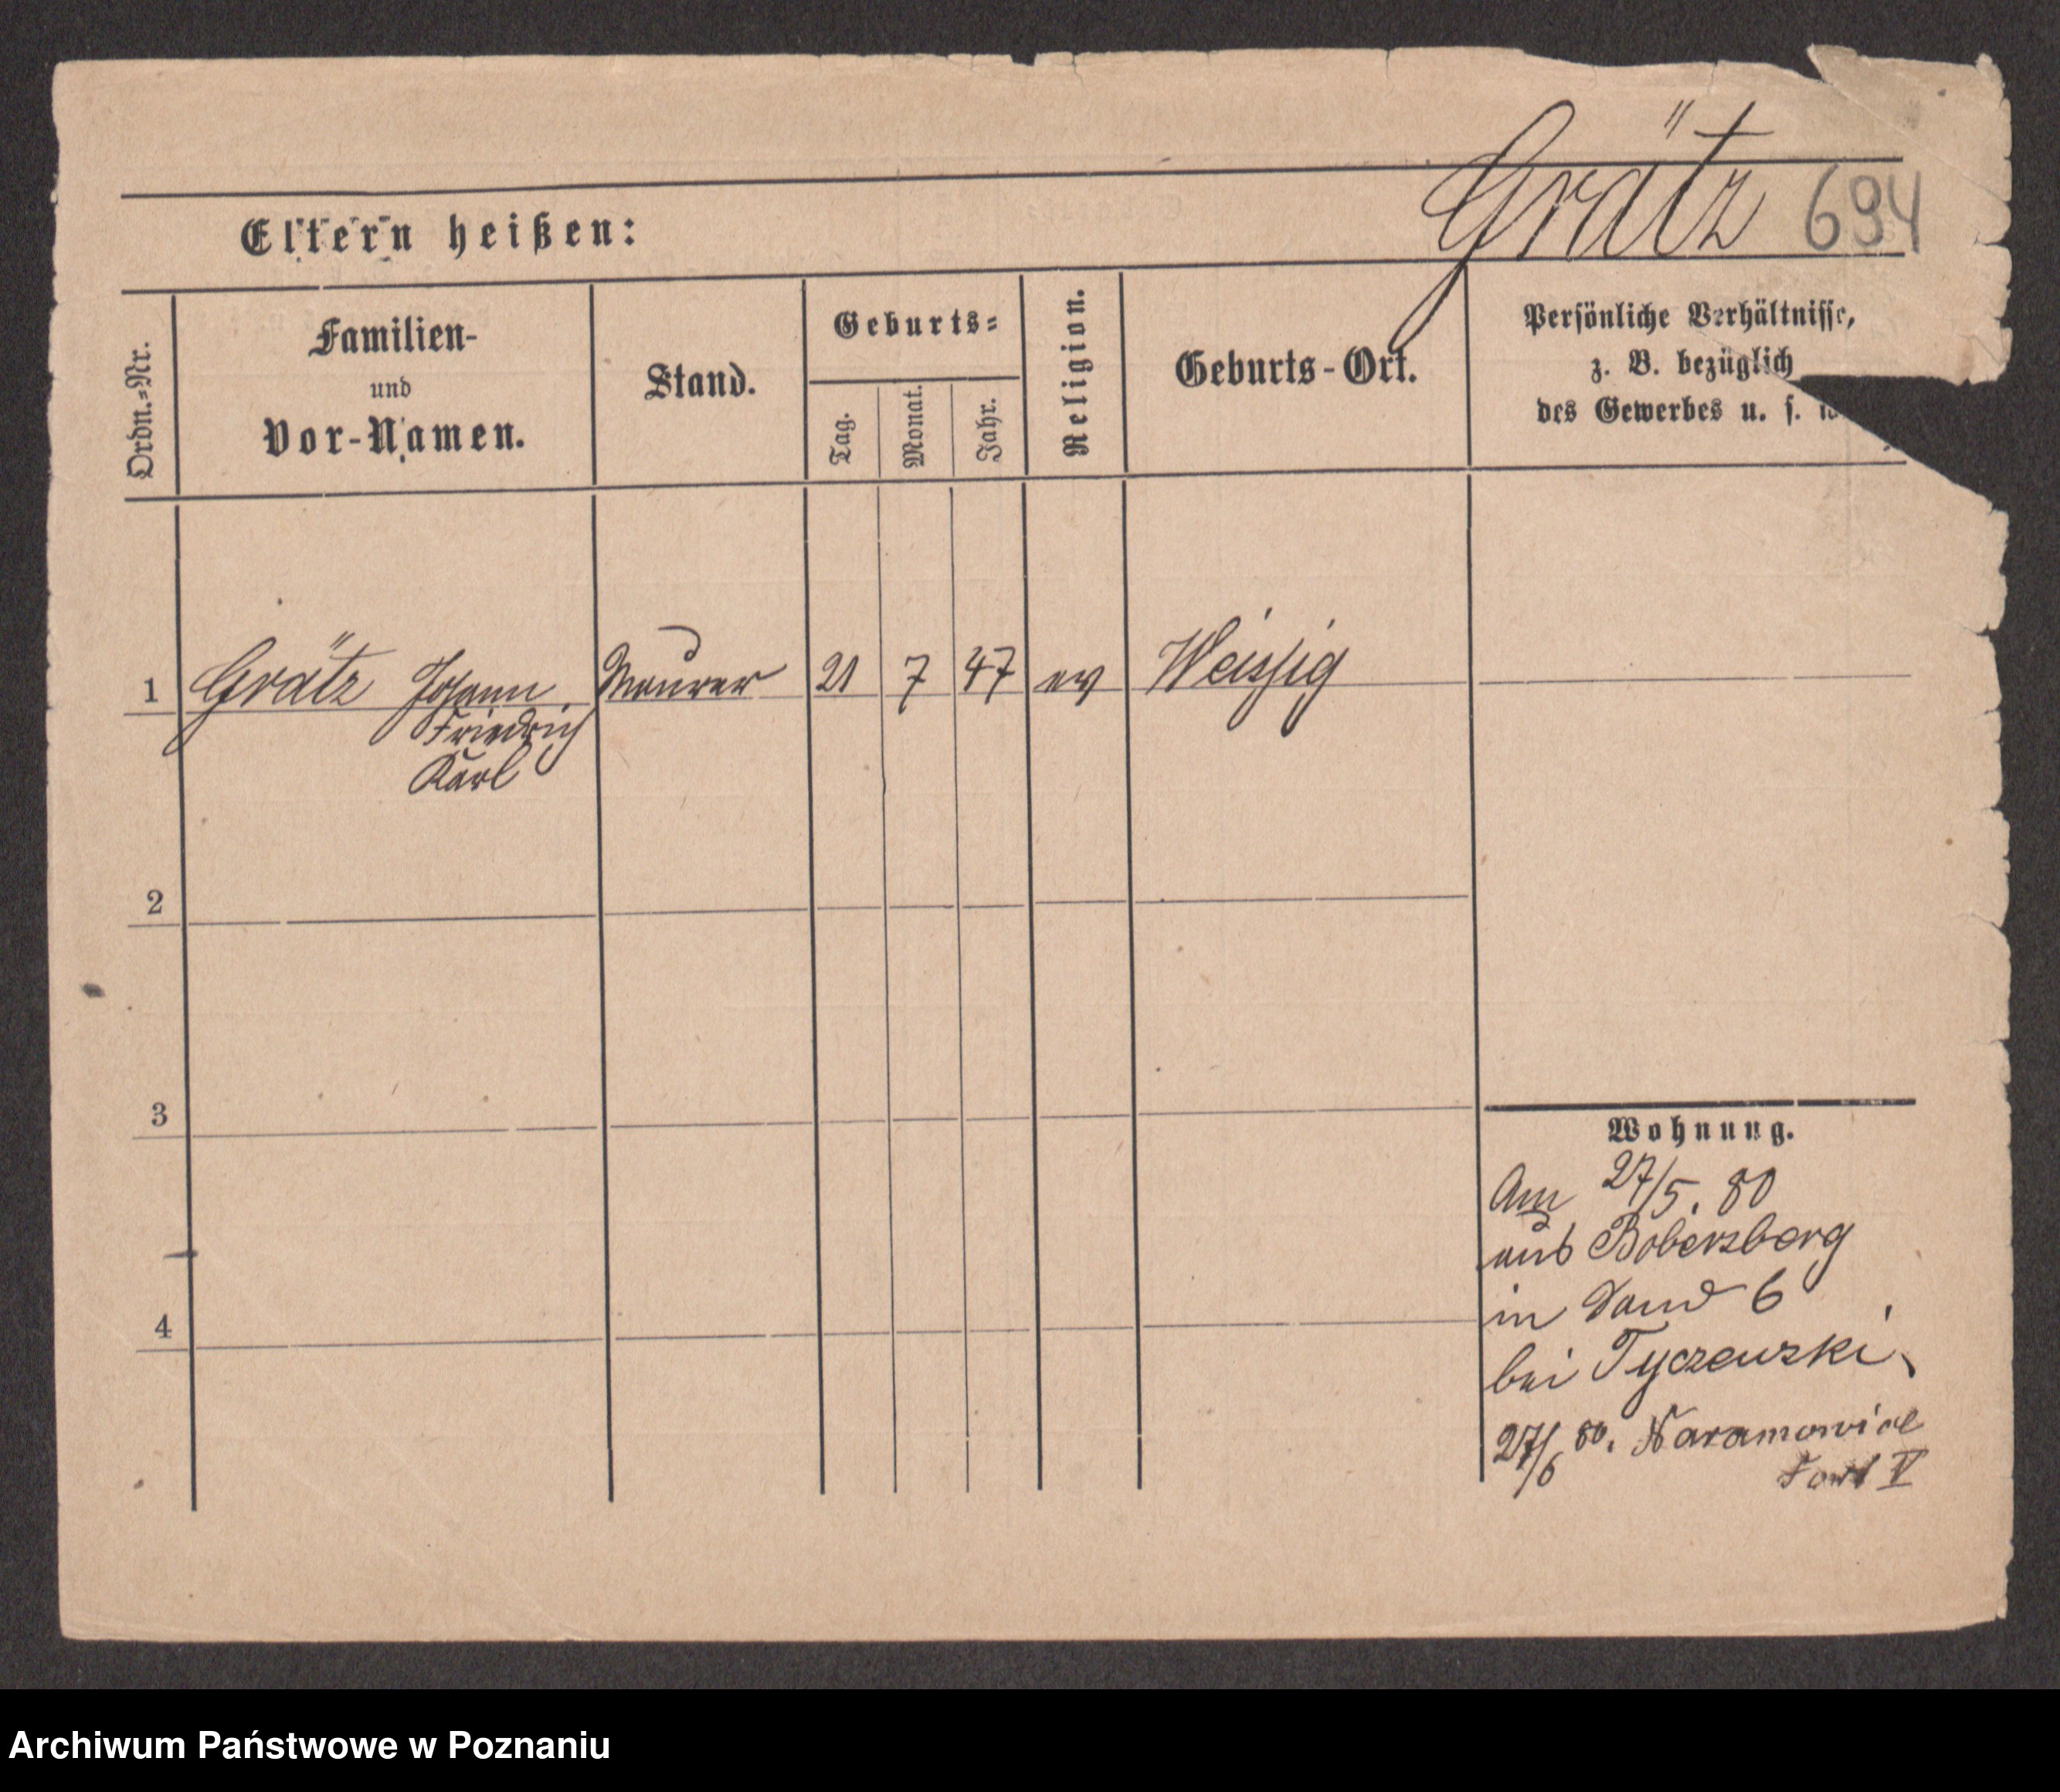 Grätz 694
Eltern heißen:
Ordn.-Nr.
Familien-
und
Vor-Namen.
Stand.
Geburts-
Tag.
Monat.
Jahr.
Religion.
Geburts-Ort.
Persönliche Verhältnisse,
z. B. bezüglich
des Gewerbes u. s.
1 Grätz Johann Maurer 21 7 47 ev Weissig
Friedrich
Karl
2
3
4
Wohnung.
Am 27/5. 80
aus Bobersberg
in Sand 6
bei Tyczewski
27/6 80. Naramowice
Fort V
Archiwum Państwowe w Poznaniu